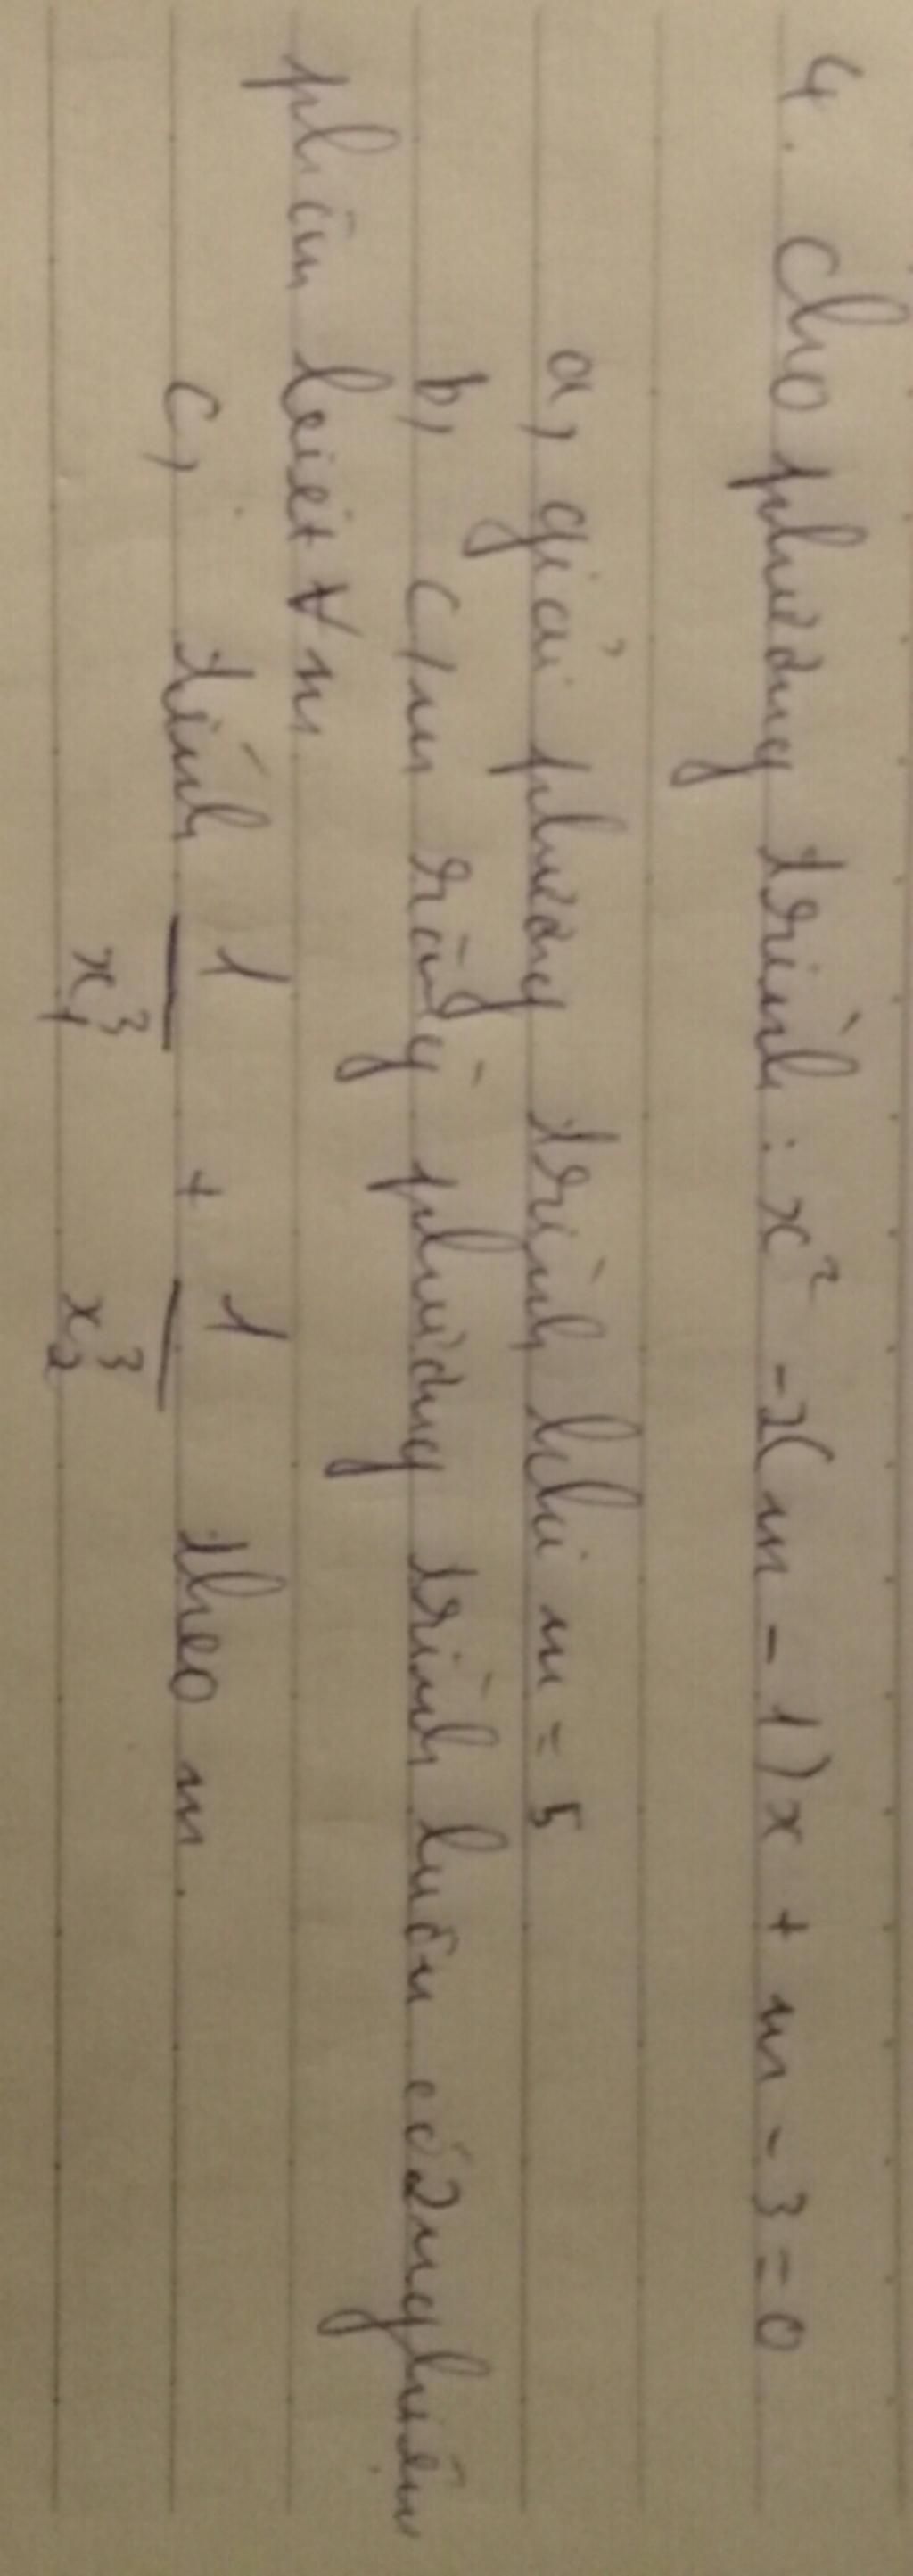 4. Cho phương trình : x² - 2(m - 1)x + m - 3 = 0
a, giải phương trình khi m = 5
b, c/m rằng phương trình luôn có 2 nghiệm
phân biệt ∀ m
c, tính 1/x₁³ + 1/x₂³ theo m.